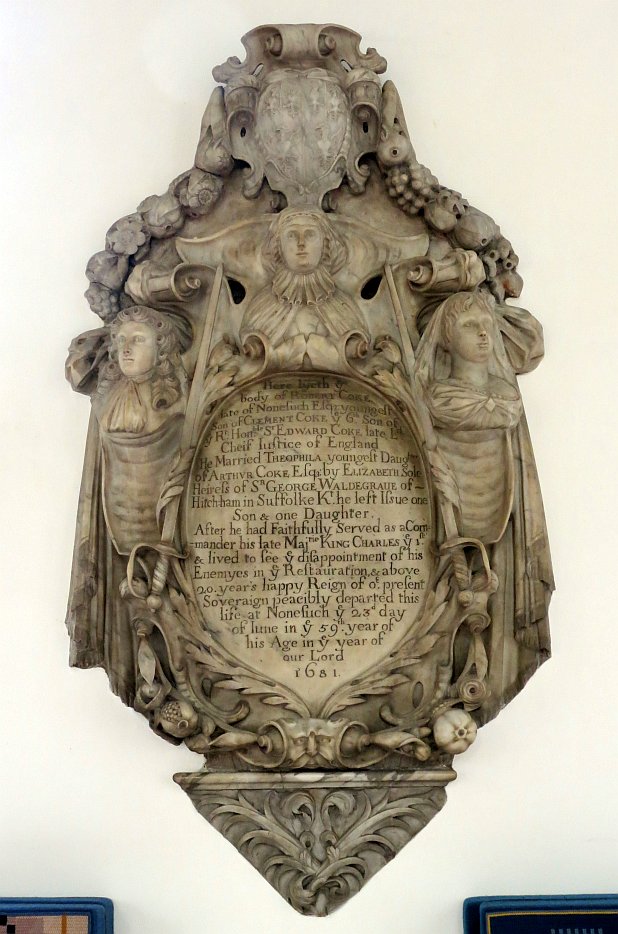 Here lyeth yͤ
body of ROBERT COKE
late of Nonesuch Esqr. youngest
Son of CLEMENT COKE yͤ 6th Son of
yͤ Rt. Honble. Sr. EDWARD COKE late Ld.
Cheif Justice of England
He Married THEOPHILA youngest Daugter
of ARTHVR COKE Esq: by ELIZABETH Sole
Heiress of Sr. GEORGE WALDEGRAUE of
Hitcham in Suffolke Kt. he left Issue one
Son & one Daughter.
After he had Faithfully Served as a Com
mander his late Majtie KING CHARLES yͤ 1st
& lived to see yͤ disappointment of his
Enemyes in yͤ Restauration, & above
20. year's happy Reign of or. present
Soveraign peacibly departed this
life at Nonesuch yͤ 23d day
of Iune in yͤ 59th year of
his Age in yͤ year of
our Lord
1681.